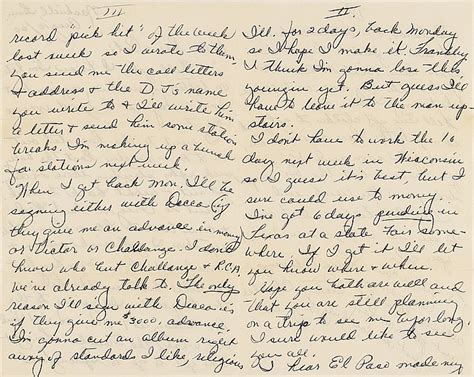 III
record "pick hit" of the week
last week so I wrote to them
you send me the call letters
& address & the D.J's name
you write to & I'll write him
a letter & send him some station
breaks. I'm making up a bunch
for stations next week.
When I get back Mon. I'll be
signing either with Decca if
they give me an advance in money
or Victor or Challenge. I don't
know who but Challenge & RCA
we've already talk to. The only
reason I'll sign with Decca is
if they give me $3000, advance.
I'm gonna cut an album right
away of standards I like, religious
II
Ill. for 2 days, back Monday
so I hope I make it. Frankly
I think I'm gonna lose this
youngin yet. But guess I'll
have to leave it to the man up
stairs.
I don't have to work the 10
days next week in Wisconsin
so I guess it's best but I
sure could use to money.
I've got 6 days pending in
Texas at a state Fair some-
where. If I get it I'll let
you know where & when.
Hope you both are well and
that you are still planning
on a trip to see me before long.
I sure would like to see
you all.
I hear El Paso made my